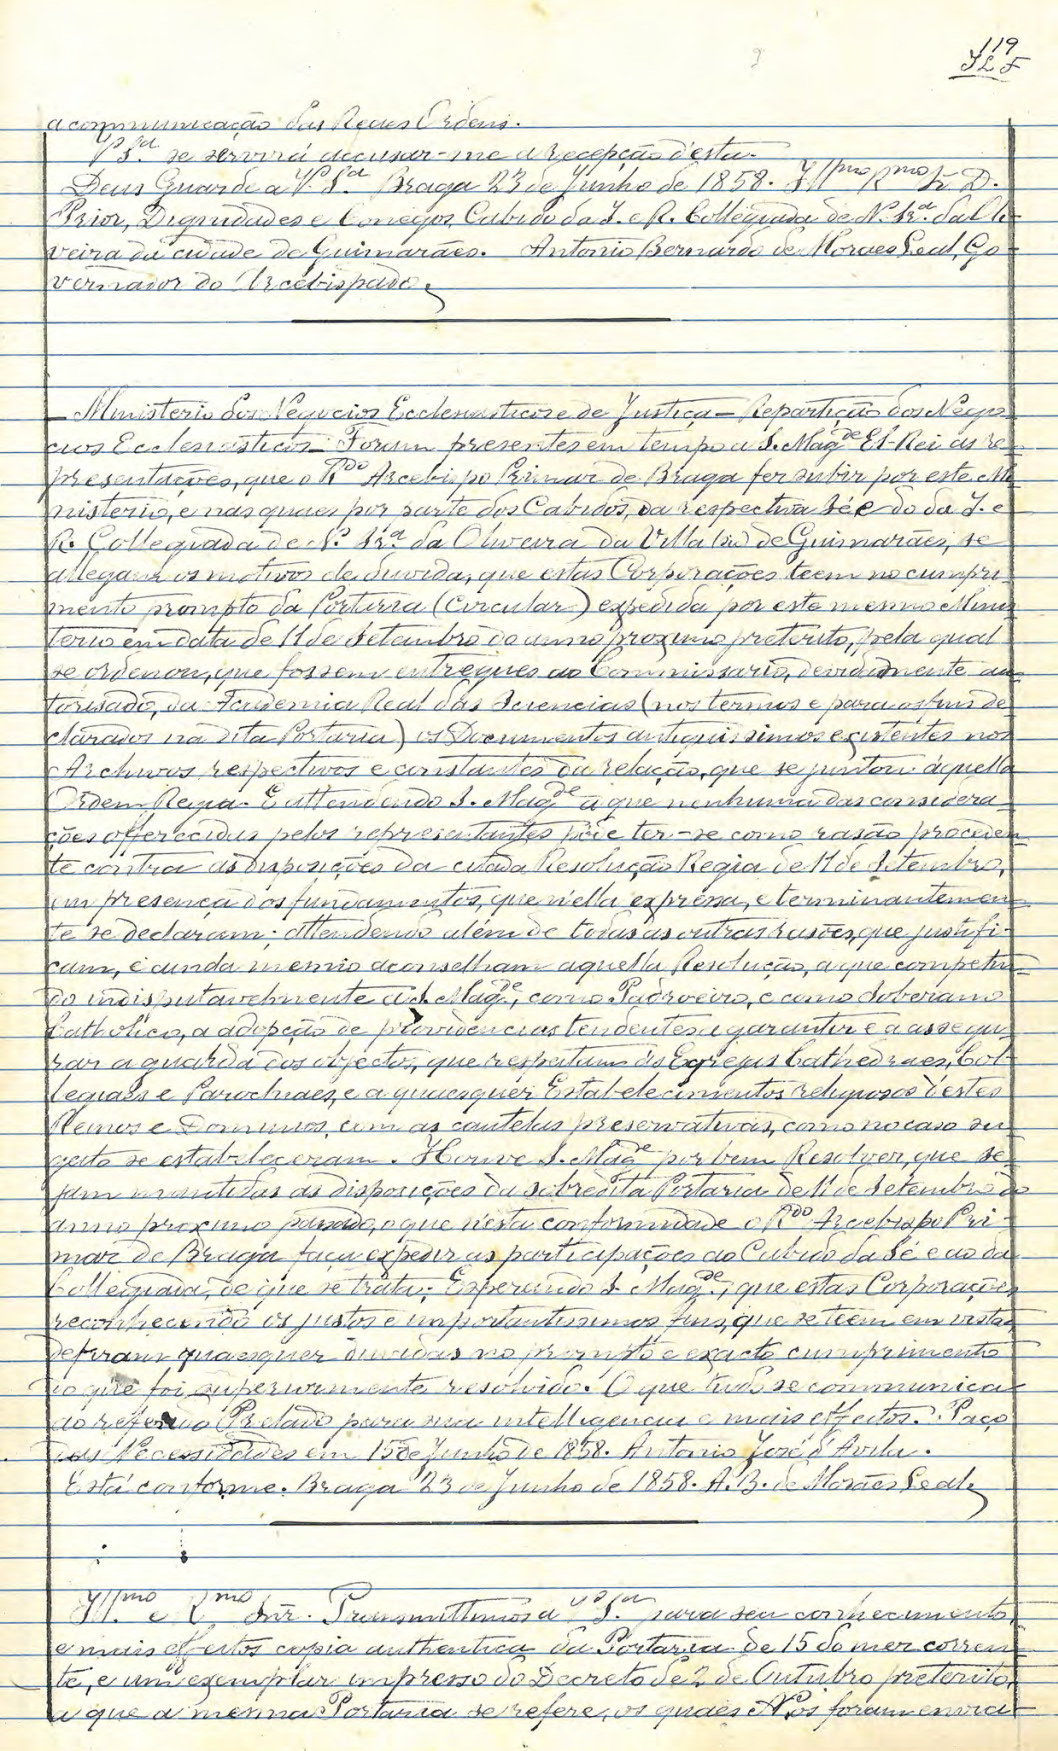 119
a communicação das Reaes Ordens.
V. S.ª se servirá accusar-me a recepção d'esta.
Deus Guarde a V. S.ª Braga 23 de Junho de 1858. Ill.mo R.mo Sr. D.
Prior, Dignidades e Conegos, Cabido da I. e R. Collegiada de N. Sr.ª da Oli-
veira da cidade de Guimarães. Antonio Bernardo de Moraes Leal, Go-
vernador do Arcebispado.
Ministerio dos Negocios Ecclesiasticos e de Justiça – Repartição dos Nego-
cios Ecclesiasticos – Foram presentes em tempo a S. Mag.de El-Rei as re-
presentações, que o R.do Arcebispo Primaz de Braga fez subir por este Mi-
nisterio, e nas quaes por parte dos Cabidos, da respectiva Sé e do da I. e
R. Collegiada de N. Sr.ª da Oliveira da Villa (sic) de Guimarães, se
allegam os motivos de duvida, que estas Corporações teem no cumpri-
mento prompto da Portaria (Circular) expedida por este mesmo Minis-
terio em data de 11 de Setembro do anno proximo preterito, pela qual
se ordenou, que fossem entregues ao Commissario, devidamente au-
torisado, da Academia Real das Sciencias (nos termos e para os fins de-
clarados na dita Portaria) os Documentos antiquissimos existentes nos
Archivos respectivos e constantes da relação, que se juntou áquella
Ordem Regia. E attendendo S. Mag.de a que nenhuma das considera-
ções offerecidas pelos representantes póde ter-se como rasão proceden-
te contra as disposições da citada Resolução Regia de 11 de Setembro,
em presença dos fundamentos, que n'ella expressa, e terminantemen-
te se declaram; attendendo além de todas as outras rasões, que justifi-
cam, e ainda mesmo aconselham aquella Resolução, a que competin-
do indisputavelmente a S. Mag.de, como Padroeiro, e como Soberano
Catholico, a adopção de providencias tendentes a garantir e a assegu-
rar a guarda dos objectos, que respeitam ás Egrejas Cathedraes, Col-
legiaes e Parochiaes, e a quaesquer Estabelecimentos religiosos d'estes
Reinos e Dominios, com as cautelas preservativas, como no caso su-
geito se estabeleceram. Houve S. Mag.de por bem Resolver, que se-
jam mantidas as disposições da sobredita Portaria de 11 de Setembro do
anno proximo passado, e que n'esta conformidade o R.do Arcebispo Pri-
maz de Braga faça expedir as participações ao Cabido da Sé e ao da
Collegiada, de que se trata; Esperando S. Mag.de, que estas Corporações
reconhecendo os justos e importantissimos fins, que se teem em vista,
defiram quaesquer duvidas no prompto e exacto cumprimento
do que foi superiormente resolvido. O que tudo se communica
ao referido Prelado para sua intelligencia e mais effeitos. Paço
das Necessidades em 15 de Junho de 1858. Antonio José d'Avila.
Está conforme. Braga 23 de Junho de 1858. A. B. de Moraes Leal.
Ill.mo e R.mo Snr. Transmittimos a V. S.ª para seu conhecimento
e mais effeitos copia authentica da Portaria de 15 do mez corren-
te, e um exemplar impresso do Decreto de 2 de Outubro preterito,
a que a mesma Portaria se refere, os quaes Nos foram envia-